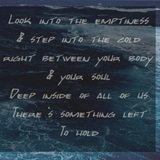 Look into the emptiness
& step into the cold
right between your body
& your soul
Deep inside of all of us
There's something left
To hold